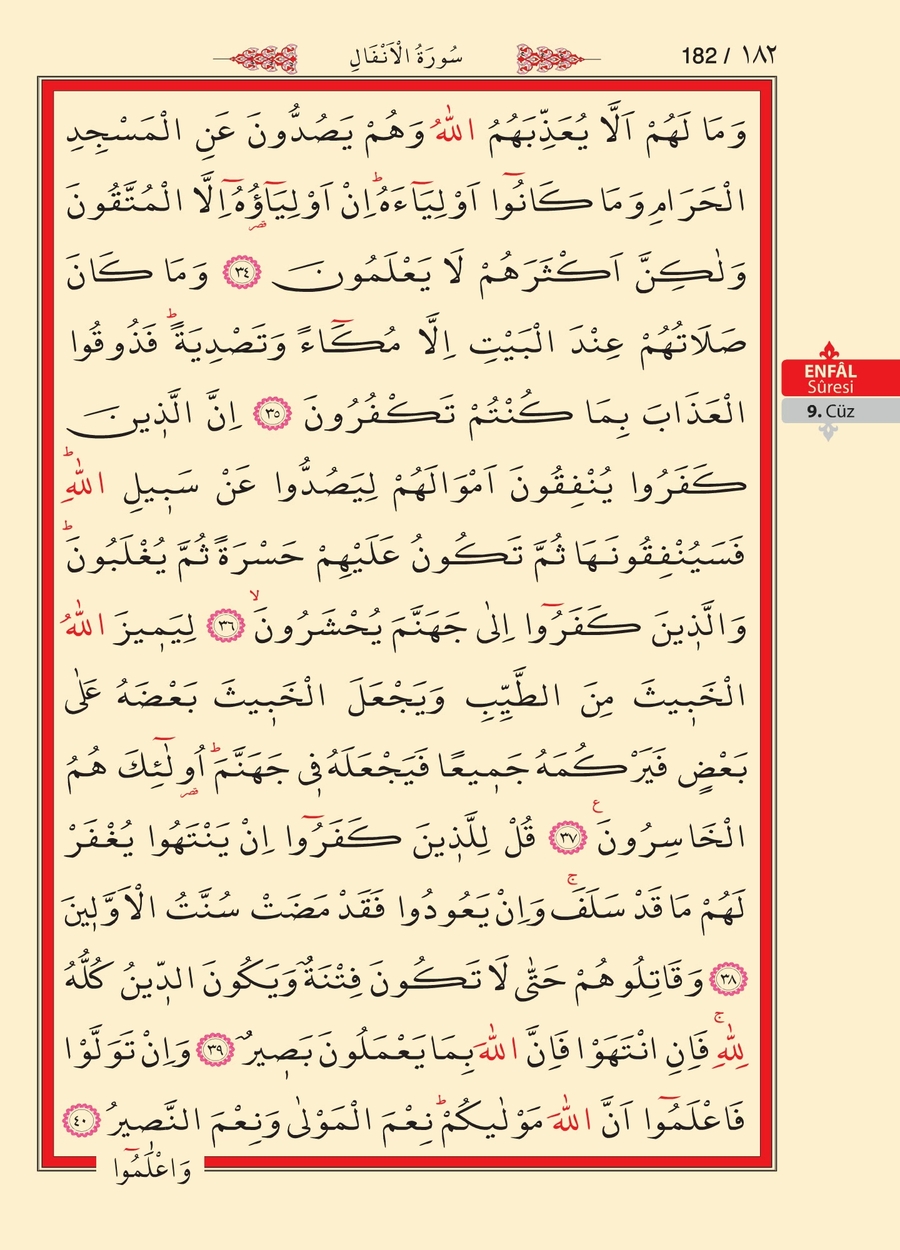 سُورَةُ الْاَنْفَالِ
182 / ١٨٢
وَمَا لَهُمْ اَلَّا يُعَذِّبَهُمُ اللّٰهُ وَهُمْ يَصُدُّونَ عَنِ الْمَسْجِدِ
الْحَرَامِ وَمَا كَانُٓوا اَوْلِيَٓاءَهُۜ اِنْ اَوْلِيَٓاؤُ۬هُٓ اِلَّا الْمُتَّقُونَ
وَلٰكِنَّ اَكْثَرَهُمْ لَا يَعْلَمُونَ ﴿٣٤﴾ وَمَا كَانَ
صَلَاتُهُمْ عِنْدَ الْبَيْتِ اِلَّا مُكَٓاءً وَتَصْدِيَةًۜ فَذُوقُوا
الْعَذَابَ بِمَا كُنْتُمْ تَكْفُرُونَ ﴿٣٥﴾ اِنَّ الَّذ۪ينَ
كَفَرُوا يُنْفِقُونَ اَمْوَالَهُمْ لِيَصُدُّوا عَنْ سَب۪يلِ اللّٰهِۜ
فَسَيُنْفِقُونَهَا ثُمَّ تَكُونُ عَلَيْهِمْ حَسْرَةً ثُمَّ يُغْلَبُونَۜ
وَالَّذ۪ينَ كَفَرُٓوا اِلٰى جَهَنَّمَ يُحْشَرُونَۙ ﴿٣٦﴾ لِيَم۪يزَ اللّٰهُ
الْخَب۪يثَ مِنَ الطَّيِّبِ وَيَجْعَلَ الْخَب۪يثَ بَعْضَهُ عَلٰى
بَعْضٍ فَيَرْكُمَهُ جَم۪يعًا فَيَجْعَلَهُ ف۪ي جَهَنَّمَۜ اُو۬لٰٓئِكَ هُمُ
الْخَاسِرُونَ۟ ﴿٣٧﴾ قُلْ لِلَّذ۪ينَ كَفَرُٓوا اِنْ يَنْتَهُوا يُغْفَرْ
لَهُمْ مَا قَدْ سَلَفَۚ وَاِنْ يَعُودُوا فَقَدْ مَضَتْ سُنَّتُ الْاَوَّل۪ينَ
﴿٣٨﴾ وَقَاتِلُوهُمْ حَتّٰى لَا تَكُونَ فِتْنَةٌ وَيَكُونَ الدّ۪ينُ كُلُّهُ
لِلّٰهِۚ فَاِنِ انْتَهَوْا فَاِنَّ اللّٰهَ بِمَا يَعْمَلُونَ بَص۪يرٌ ﴿٣٩﴾ وَاِنْ تَوَلَّوْا
فَاعْلَمُٓوا اَنَّ اللّٰهَ مَوْلٰيكُمْۜ نِعْمَ الْمَوْلٰى وَنِعْمَ النَّص۪يرُ ﴿٤٠﴾
وَاعْلَمُٓوا
ENFÂL
Sûresi
9. Cüz